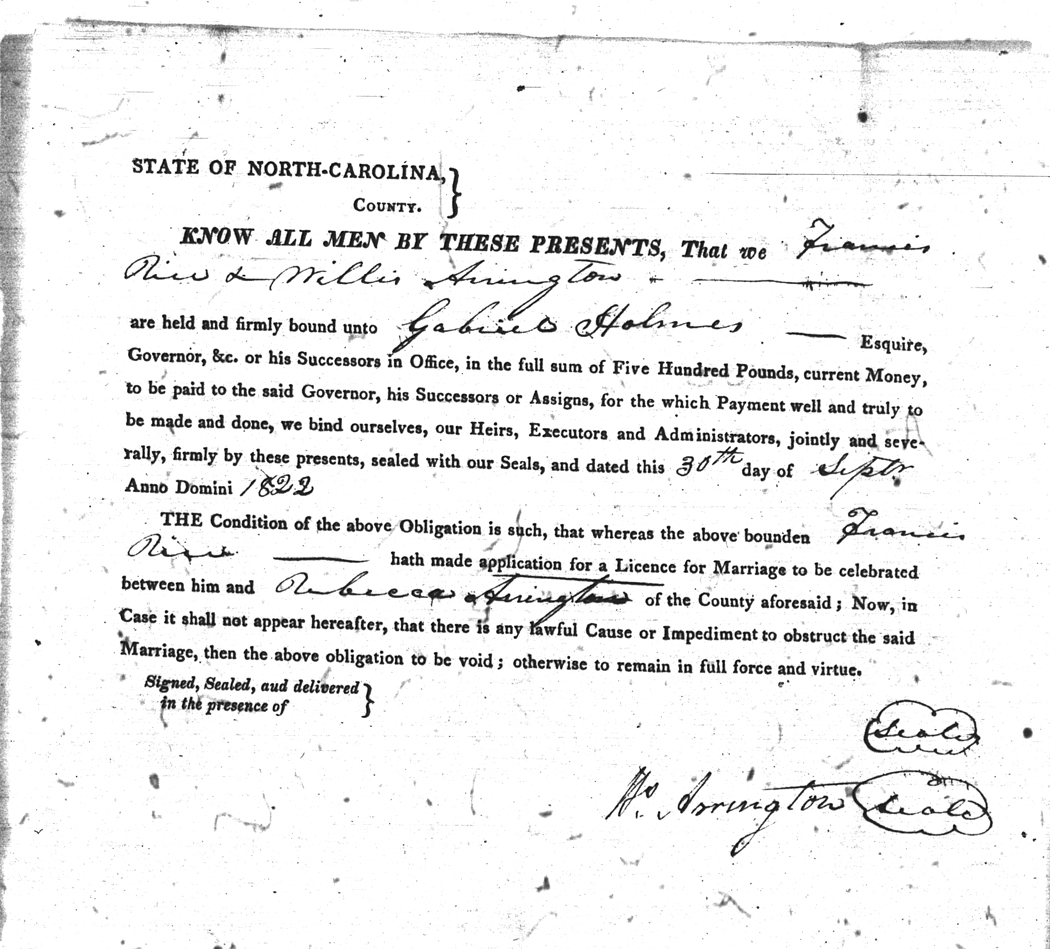 STATE OF NORTH-CAROLINA,
COUNTY.
KNOW ALL MEN BY THESE PRESENTS, That we Francis
Rice & Willis Arrington
are held and firmly bound unto Gabriel Holmes — Esquire,
Governor, &c. or his Successors in Office, in the full sum of Five Hundred Pounds, current Money,
to be paid to the said Governor, his Successors or Assigns, for the which Payment well and truly to
be made and done, we bind ourselves, our Heirs, Executors and Administrators, jointly and seve-
rally, firmly by these presents, sealed with our Seals, and dated this 30th day of Septr
Anno Domini 1822
THE Condition of the above Obligation is such, that whereas the above bounden Francis
Rice — hath made application for a Licence for Marriage to be celebrated
between him and Rebecca Arrington of the County aforesaid; Now, in
Case it shall not appear hereafter, that there is any lawful Cause or Impediment to obstruct the said
Marriage, then the above obligation to be void; otherwise to remain in full force and virtue.
Signed, Sealed, aud delivered
in the presence of
Seal
Ws. Arrington Seal